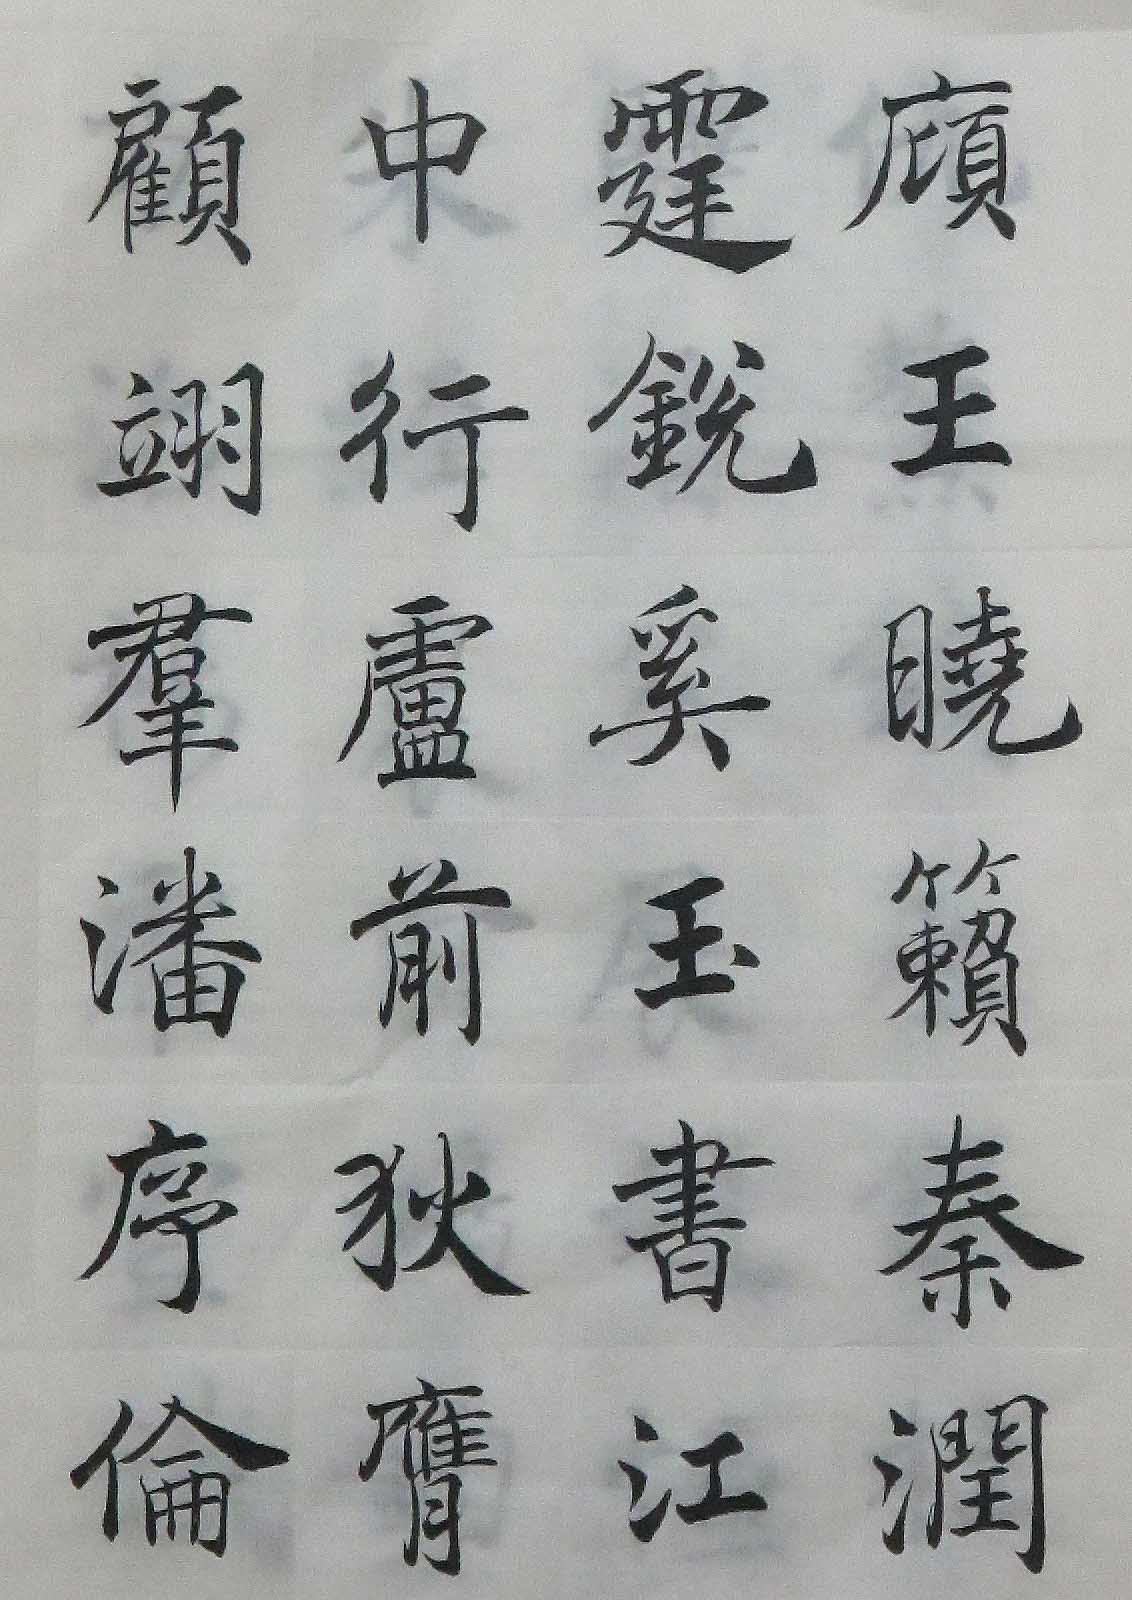 廎王曉籟秦潤
霆銳奚玉書江
中行盧前狄膺
顧翊羣潘序倫